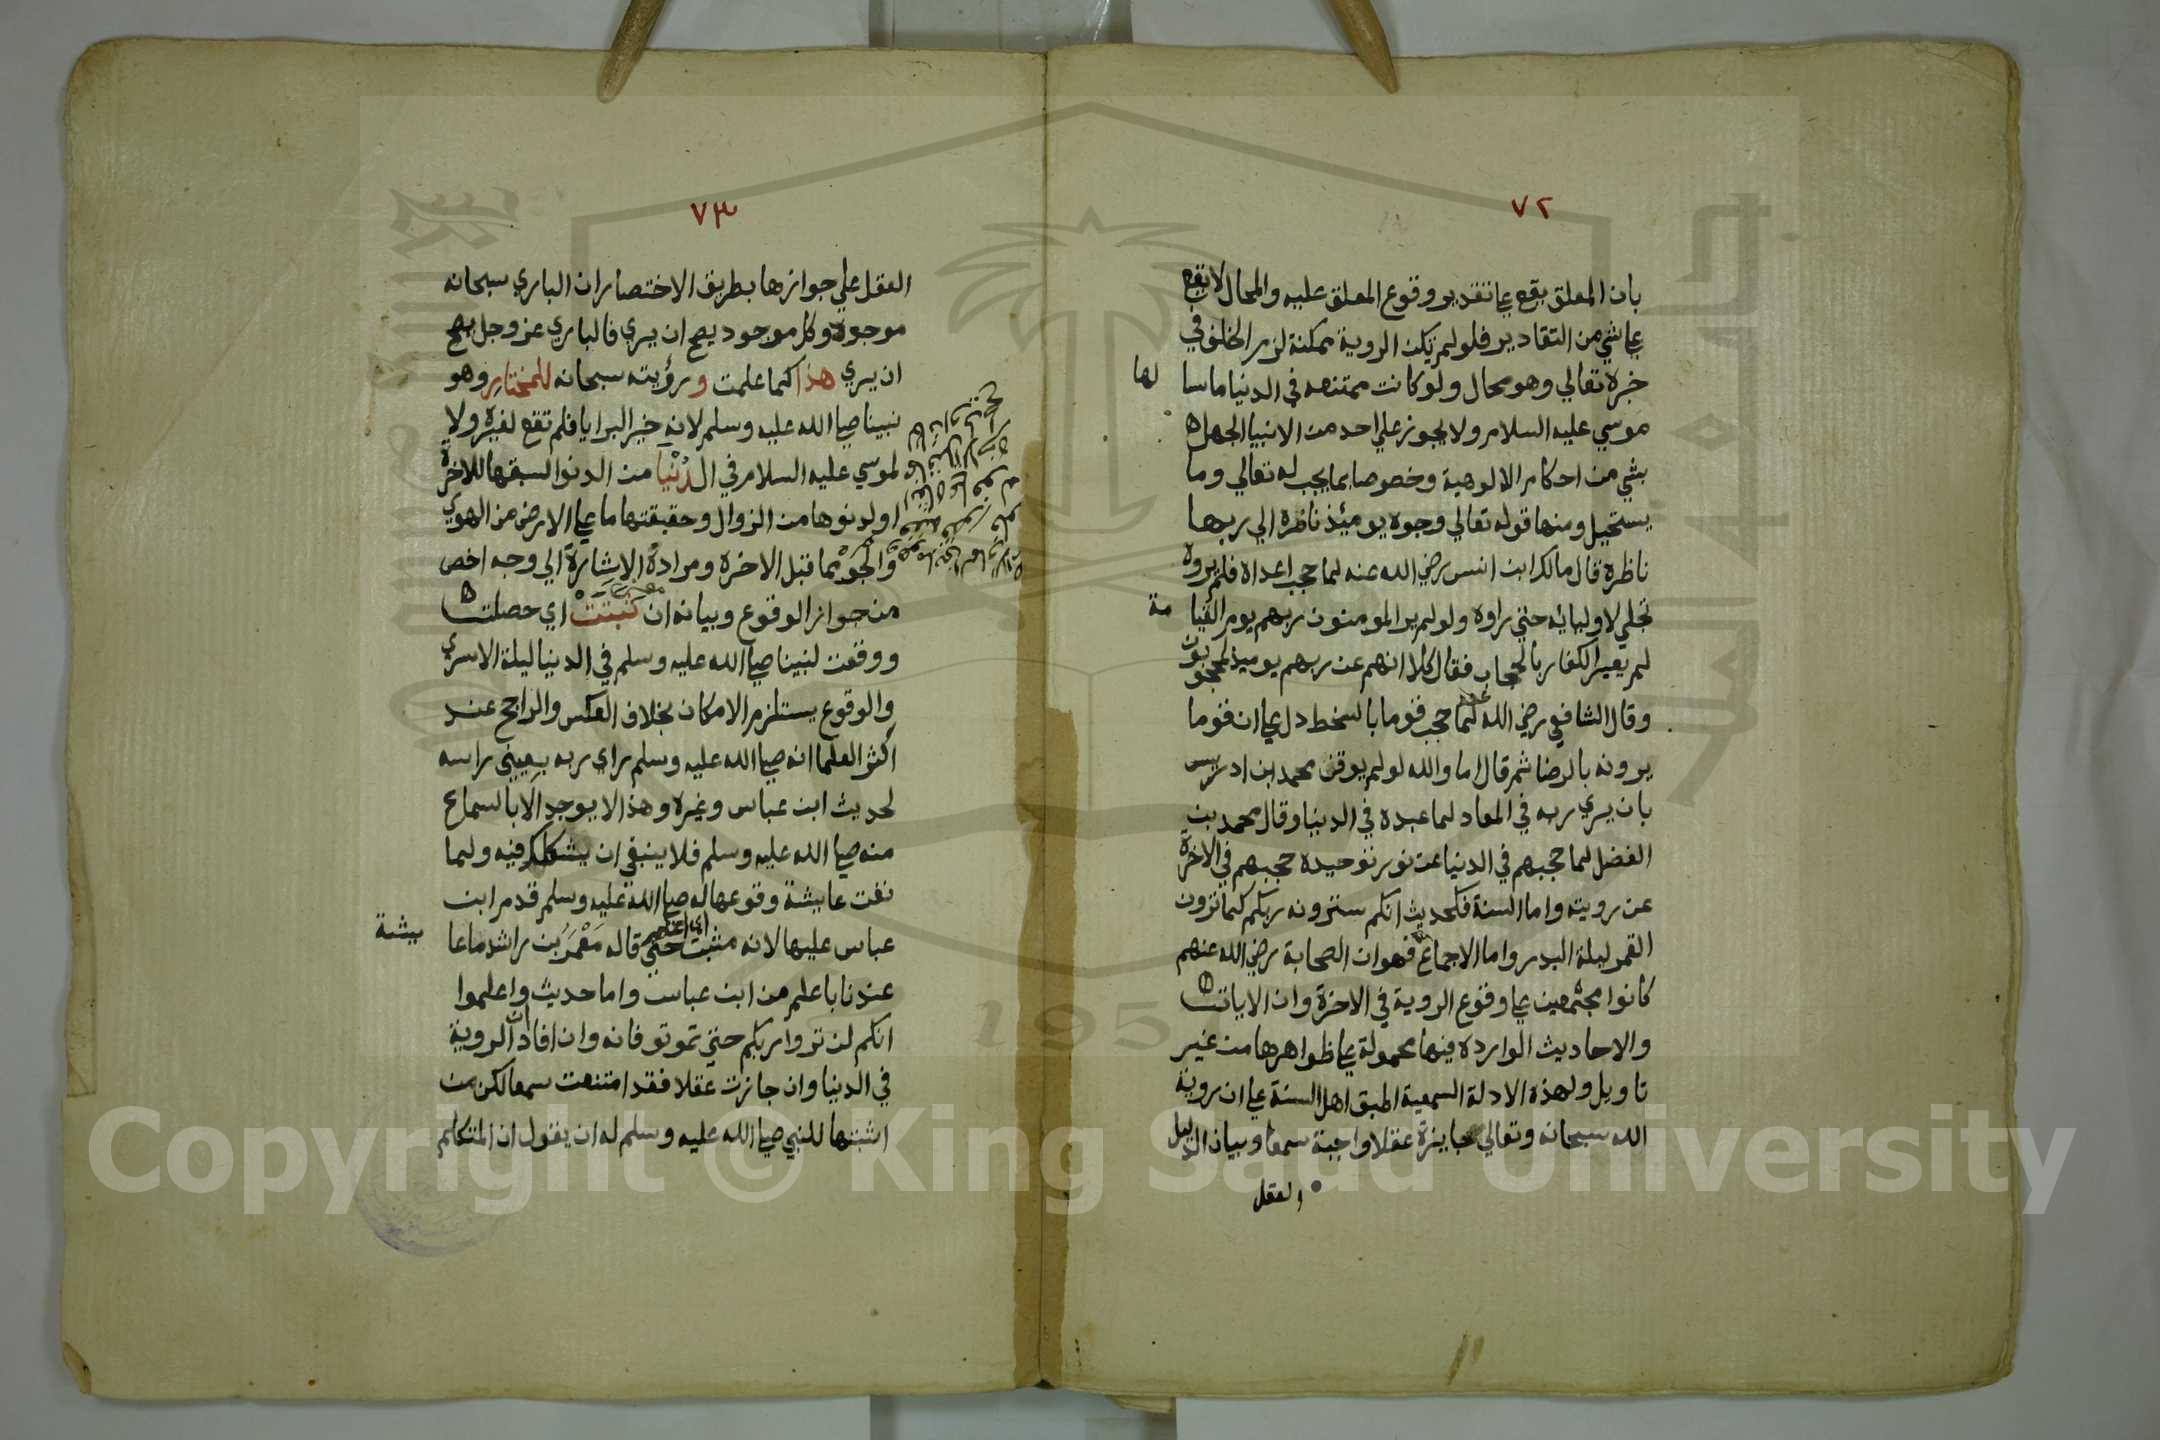 ٧٢
بان المعلق يقع علي تقدير وقوع المعلق عليه والمحال لا يقع
علي شي من التقادير فلو لم تكن الروية ممكنة لزم الخلف في
خبره تعالي وهو محال ولو كانت ممتنعه في الدنيا ما سا
لها
موسي عليه السلام ولا يجوز علي احد من الانبيا الجهل
بشي من احكام الالوهية وخصوصا بما يجب له تعالي وما
يستحيل ومنها قوله تعالي وجوه يومئذ ناظرة الي ربها
ناظرة قال مالك ابن انس رضي الله عنه لما حجب اعداه فلم يروه
تجلي لاوليائه حتي راوه ولو لم ير المومنون ربهم يوم القيا
مة
لم يعير الكفار بالحجاب فقال كلا انهم عن ربهم يوميذ لمحجوبون
وقال الشافعي رضي الله عنه لما حجب قوما بالسخط دل علي ان قوما
يرونه بالرضا ثم قال اما والله لو لم يوقن محمد ابن ادريس
بان يري ربه في المعاد لما عبده في الدنيا وقال محمد بن
الفضل لما حجبهم في الدنيا عن نور توحيده حجبهم في الاخرة
عن رويته واما السنة فكحديث انكم سترونه ربكم كما ترون
القمر ليلة البدر واما الاجماع فهو ان الصحابة رضي الله عنهم
كانوا مجتمعين علي وقوع الروية في الاخرة وان الايات
والاحاديث الواردة فيها محمولة علي ظواهرها من غير
تاويل ولهذه الادلة السمعية اطبق اهل السنة علي ان روية
الله سبحانه وتعالي جايزة عقلا واجبة سمعا وبيان الدليل
العقل
٧٣
العقل علي جوازها بطريق الاختصار ان الباري سبحانه
موجود وكل موجود يصح ان يري فالباري عز وجل يصح
ان يري هذا كما علمت ورؤيته سبحانه للمختار وهو
نبينا صلي الله عليه وسلم لانه خير البرايا فلم تقع لغيره ولا
لموسي عليه السلام في الدنيا من الدنو السبقها للاخرة
او لدنوها من الزوال وحقيقتها ما علي الارض من الهوي
والجو مما قبل الاخرة ومراده الاشارة الي وجه اخص
من جواز الوقوع وبيانه ان ثبتت اي حصلت
ووقعت لنبينا صلي الله عليه وسلم في الدنيا ليلة الاسري
والوقوع يستلزم الامكان بخلاف العكس والراجح عند
اكثر العلما انه صلي الله عليه وسلم راي ربه بعيني راسه
لحديث ابن عباس وغيره وهذا لا يوجد الا بالسماع
منه صلي الله عليه وسلم فلا ينبغي ان يشكك فيه ولما
نفت عايشة وقوعها له صلي الله عليه وسلم قدم ابن
عباس عليها لانه مثبت حتي قاله معمر بن راشد ما عا
يشة
عندنا باعلم من ابن عباس واما حديث واعلموا
انكم لن تروا ربكم حتي تموتو فانه وان افاد ان الروية
في الدنيا وان جازت عقلا فقد امتنعت سمعا لكن من
اثبتها للنبي صلي الله عليه وسلم له ان يقول ان المتكلم
Copyright © King Saud University
195